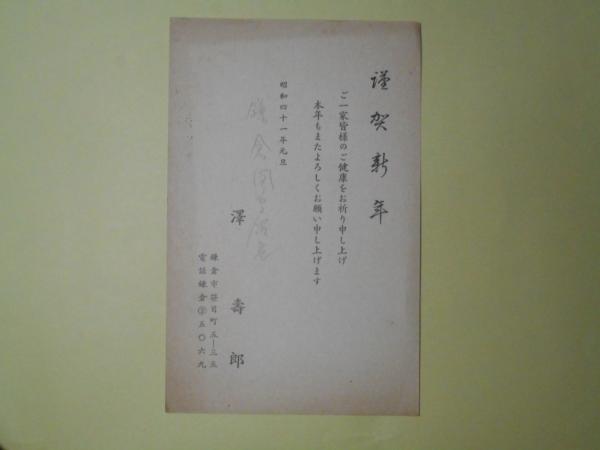 謹賀新年
ご一家皆様のご健康をお祈り申し上げ
本年もまたよろしくお願い申し上げます
昭和四十一年元旦
鎌倉図書館長
澤壽郎
鎌倉市笹目町五ー三五
電話鎌倉②五〇六九